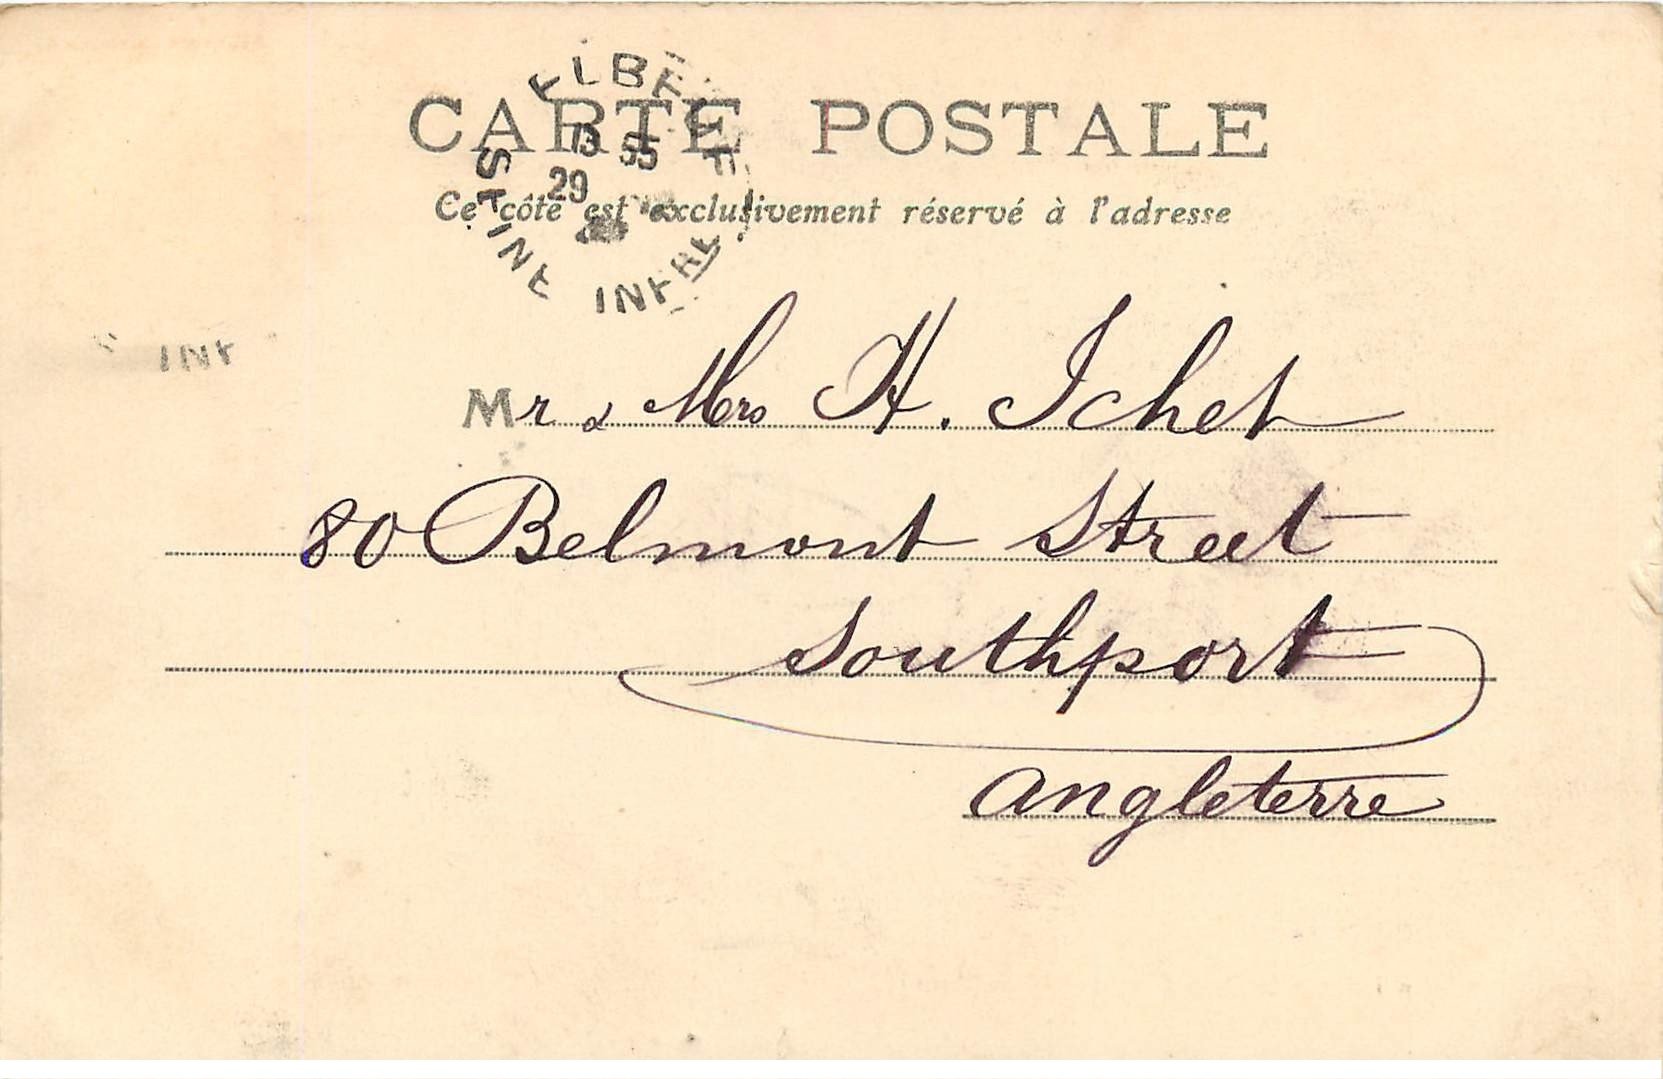 CARTE POSTALE
Ce côté est exclusivement réservé à l'adresse
ELBEUF
SEINE INFRE
13 55
29
INF
Mr & Mrs H. Ichet
80 Belmont Street
Southport
Angleterre